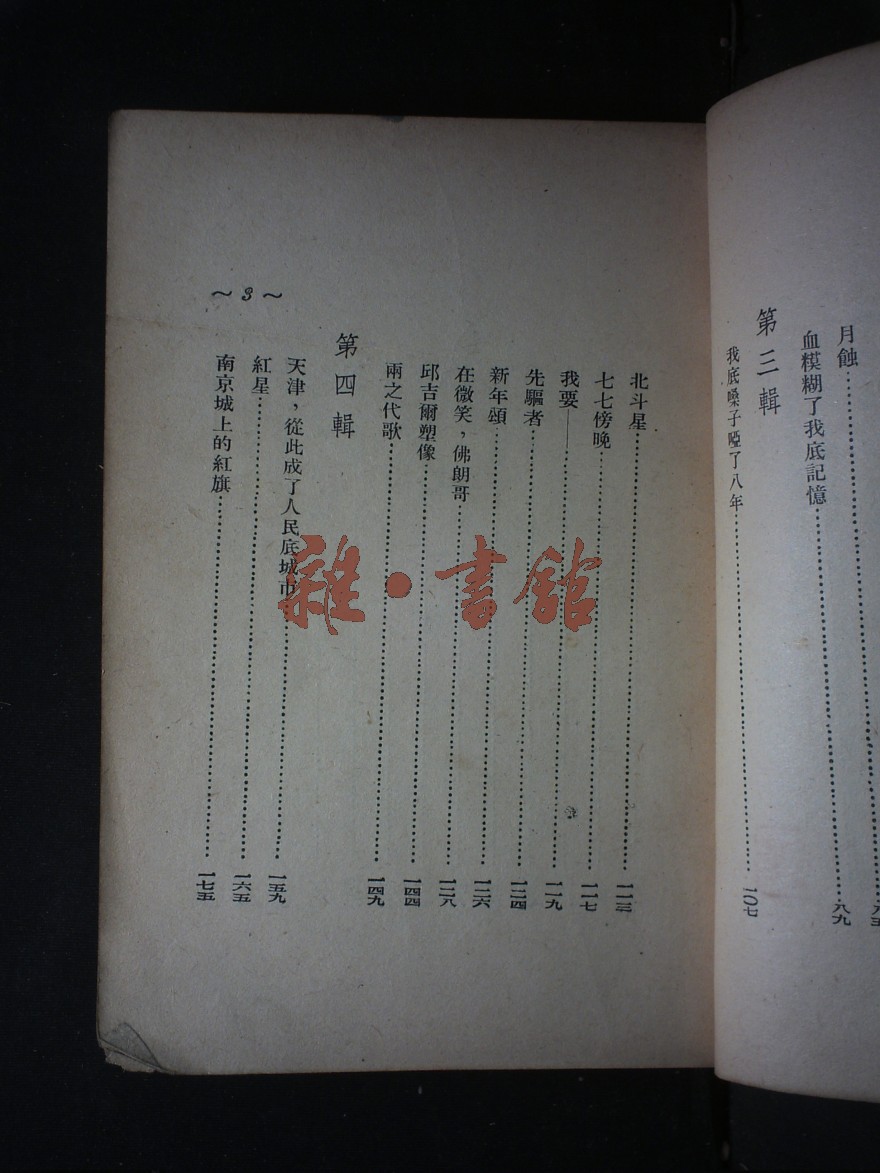 月蝕
血糢糊了我底記憶…………八九
第三輯
我底嗓子啞了八年…………一〇七
北斗星…………一一三
七七傍晚…………一一七
我要——…………一一九
先驅者…………一二四
新年頌…………一二六
在微笑，佛朗哥…………一二八
邱吉爾塑像…………一四四
兩之代歌…………一四九
第四輯
天津，從此成了人民底城市…………一五九
紅星…………一六五
南京城上的紅旗…………一七五
～3～
雜·書館